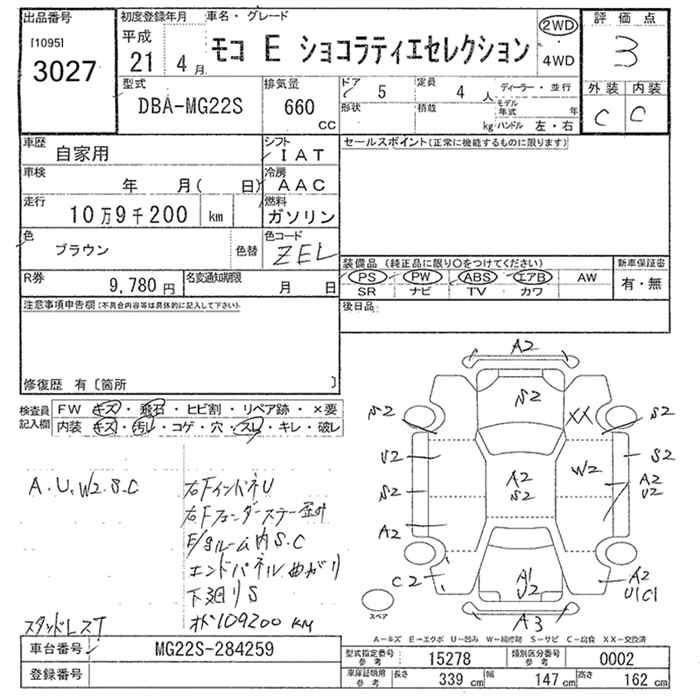 出品番号
[1095]
3027
初度登録年月
平成
21 年 4 月
車名・グレード
モコ E ショコラティエセレクション
2WD
4WD
評価点
3
外装 内装
C C
型式
DBA-MG22S
排気量
660
CC
ドア 5
形状
定員 4 人
積載 kg
ディーラー・並行
モデル年式 年
ハンドル 左・右
車歴
自家用
シフト
IAT
車検
年 月( 日)
冷房
AAC
走行
10万9千200 km
燃料
ガソリン
色
ブラウン
色替
色コード
ZEL
R券
9,780 円
名変通知期限
月 日
セールスポイント(正常に機能するものに限ります)
装備品 (純正品に限り○をつけてください)
PS PW ABS エアB AW
SR ナビ TV カワ
新車保証書
有・無
後日品
注意事項申告欄(不具合内容等は具体的に記入して下さい)
修復歴 有〔箇所 〕
検査員記入欄
FW キズ・飛石・ヒビ割・リペア跡・×要
内装 キズ・汚レ・コゲ・穴・スレ・キレ・破レ
A.U.W2.S.C
右FインドネU
右Fフェンダーステー歪み
E/gルーム内 S.C
エンドパネル曲がり
下廻りS
オド109200KM
スタッドレスT
A2
S2
S2
XX
S2
U2
S2
A2
C2
A2
S2
W2
S2
A2
U2
A1
U2
A2
U1C1
A3
スペア
A-キズ E-エクボ U-凹み W-補修跡 S-サビ C-腐食 XX-交換済
車台番号
MG22S-284259
登録番号
型式指定番号
参考
15278
類別区分番号
参考
0002
車庫証明用
参考
長さ 339 cm 幅 147 cm 高さ 162 cm